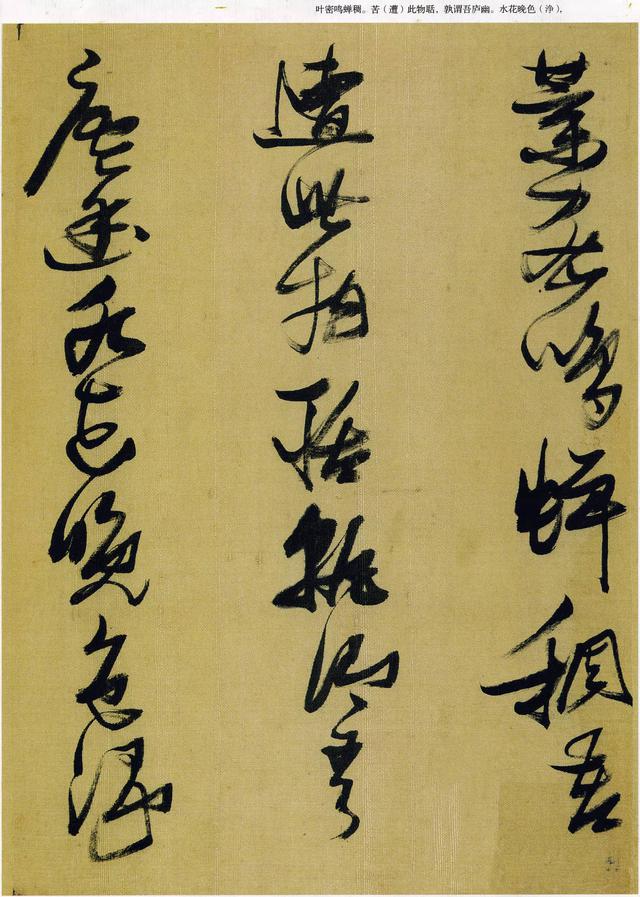 叶密鸣蝉稠。苦（遭）此物聒，孰谓吾庐幽。水花晚色（净），
葉密鳴蟬稠苦
遭此物聒孰謂吾
廬幽水花晚色淨